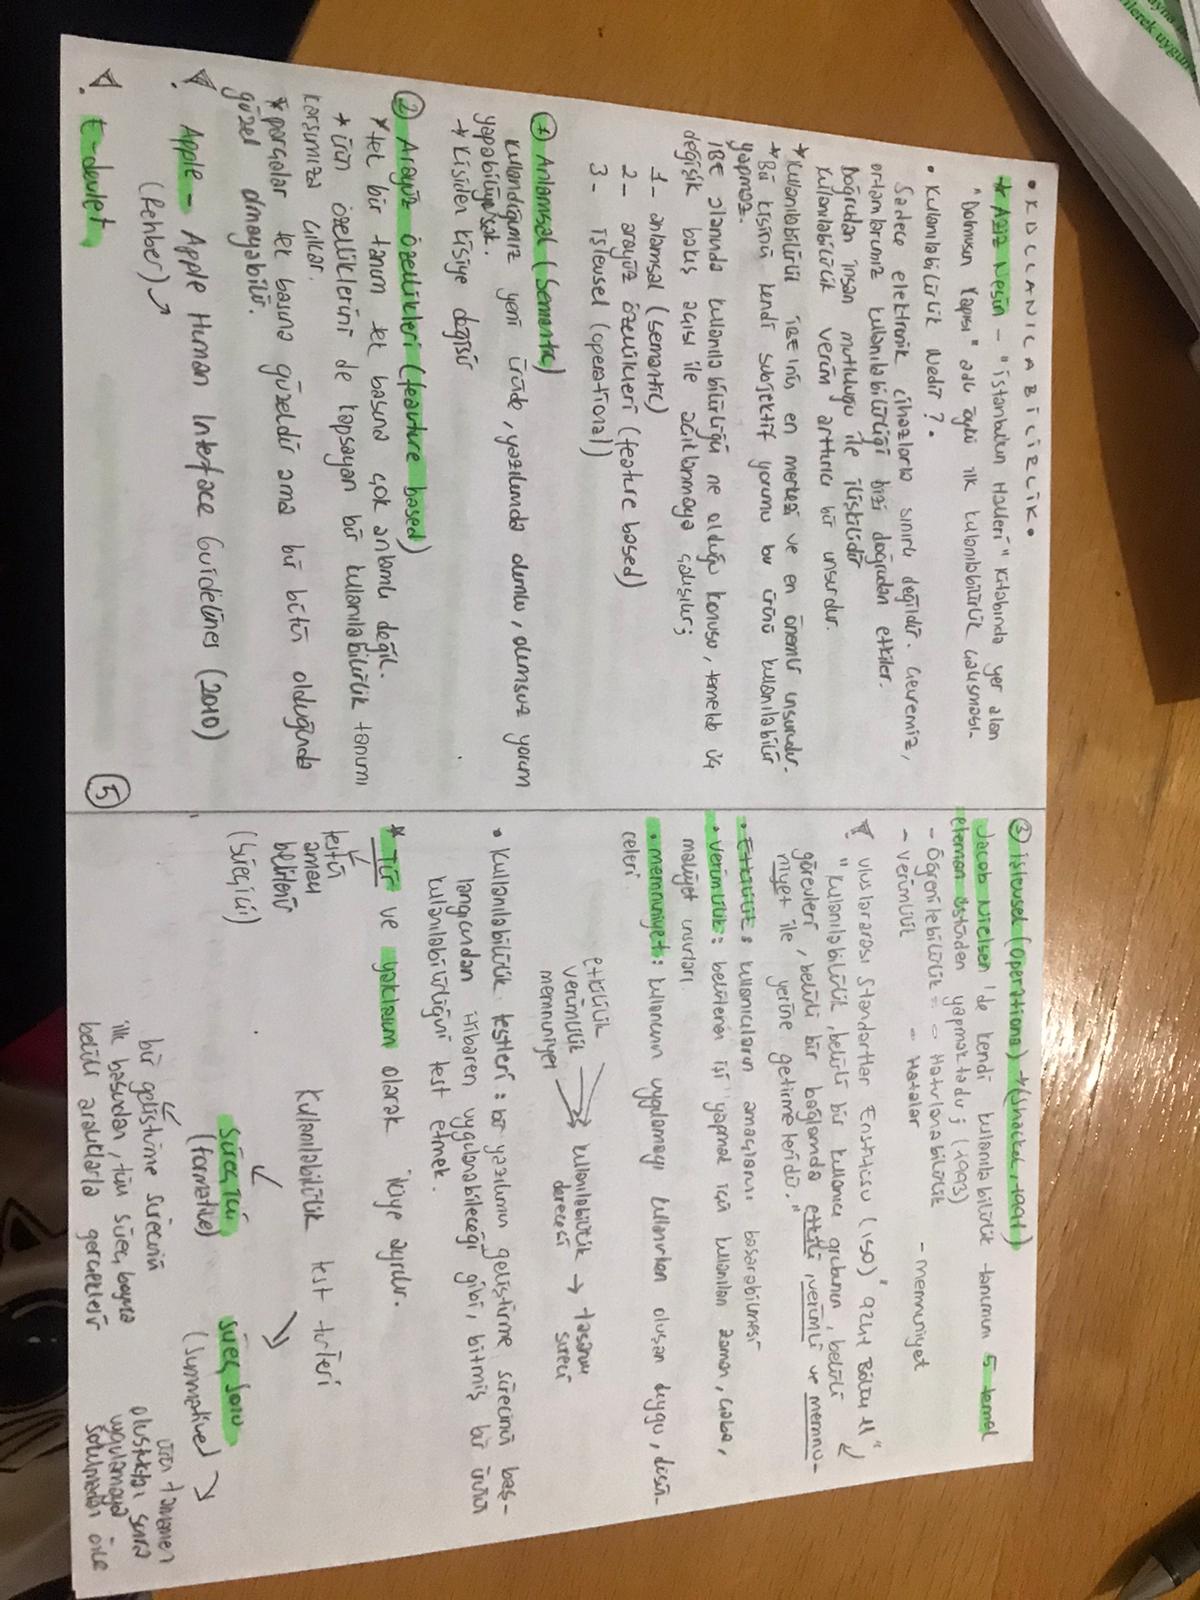 • KULLANILABİLİRLİK •
* Aziz Nesin - "İstanbulun Halleri" kitabında yer alan
"Dolmuşun Kapısı" adlı öykü ilk kullanılabilirlik çalışması.
• Kullanılabilirlik Nedir ? •
Sadece elektronik cihazlarla sınırlı değildir. Çevremiz,
ortamlarımız kullanılabilirliği bizi doğrudan etkiler.
Doğrudan insan mutluluğu ile ilişkilidir
Kullanılabilirlik verim arttırıcı bir unsurdur.
* Kullanılabilirlik İBE'nin en merkezi ve en önemli unsurudur.
* Bir kişinin kendi subjektif yorumu bir ürünü kullanılabilir
yapmaz.
İBE alanında kullanılabilirliğin ne olduğu konusu, temelde üç
değişik bakış açısı ile açıklanmaya çalışılır;
1- anlamsal (semantic)
2- arayüz özellikleri (feature based)
3- işlevsel (operational)
① Anlamsal (Semantic)
Kullandığımız yeni üründe, yazılımda olumlu, olumsuz yorum
yapabiliyorsak.
→ Kişiden kişiye değişir
② Arayüz özellikleri (feauture based)
* tek bir tanım tek başına çok anlamlı değil.
* ürün özelliklerini de kapsayan bir kullanılabilirlik tanımı
karşımıza çıkar.
* parçalar tek başına güzeldir ama bir bütün olduğunda
güzel olmayabilir.
! Apple - Apple Human Interface Guidelines (2010)
(Rehber) ↗
! E-devlet
⑤
③ işlevsel (Operationa) → (Shackel, 1991)
Jacob Nielsen 'de kendi kullanılabilirlik tanımını 5 temel
eleman üstünden yapmaktadır; (1993)
- Öğrenilebilirlik - Hatırlanabilirlik
- verimlilik - Hatalar - memnuniyet
! Uluslararası Standartlar Enstitüsü (ISO) "9241 Bölüm 11"
"Kullanılabilirlik, belirli bir kullanıcı grubunun, belirli
görevleri, belirli bir bağlamda etkili, verimli ve memnu-
niyet ile yerine getirmeleridir."
• Etkililik: kullanıcıların amaçlarını başarabilmesi
• Verimlilik: belirlenen işi yapmak için kullanılan zaman, çaba,
maliyet unsurları.
• memnuniyet: kullanıcının uygulamayı kullanırken oluşan duygu, düşün-
celeri
etkililik
verimlilik → kullanılabilirlik derecesi → tasarım süreci
memnuniyet
• Kullanılabilirlik testleri: bir yazılımın geliştirme sürecinin baş-
langıcından itibaren uygulanabileceği gibi, bitmiş bir ürünün
kullanılabilirliğini test etmek.
* Tür ve yaklaşım olarak ikiye ayrılır.
testin
amacı
belirlenir
(Süreç içi)
Kullanılabilirlik test türleri
Süreç içi
(formative)
bir geliştirme sürecinin
ilk başından, tüm süreç boyunca
belirli aralıklarla gerçekleşir
süreç sonu
(summative)
ürün tamamen
oluştuktan sonra
uygulamaya
satılmadan önce